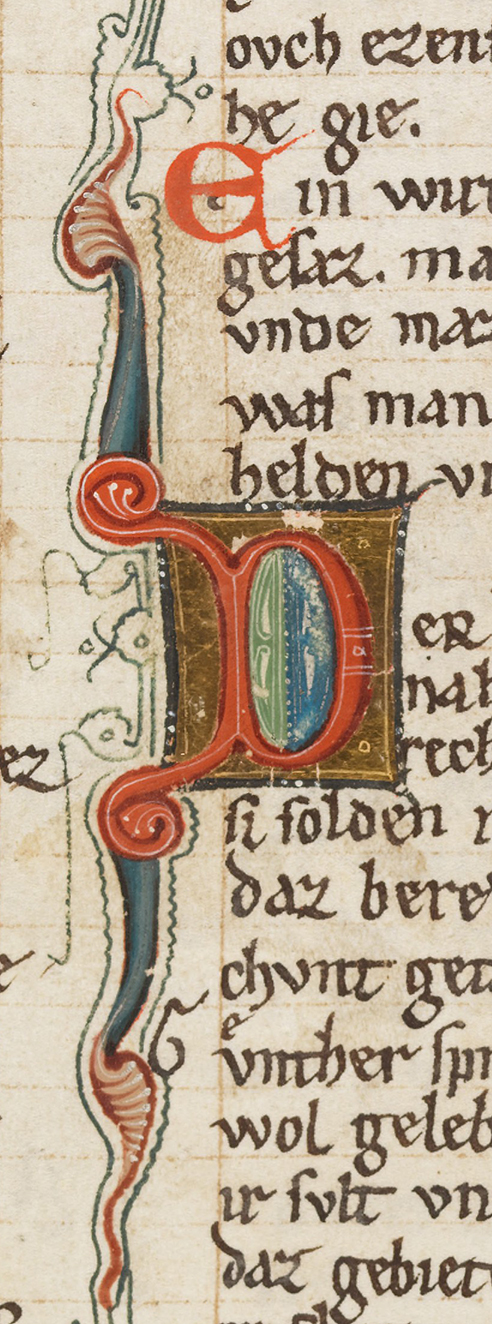 ovch ezen
he gie.
Ein wirt
gesaz. ma
vnde maz
was man
helden vn
DER
nah
rech
ez
si solden
daz bere
chvnt get
Gvnther spr
wol geleb
ir svlt vn
daz gebiet